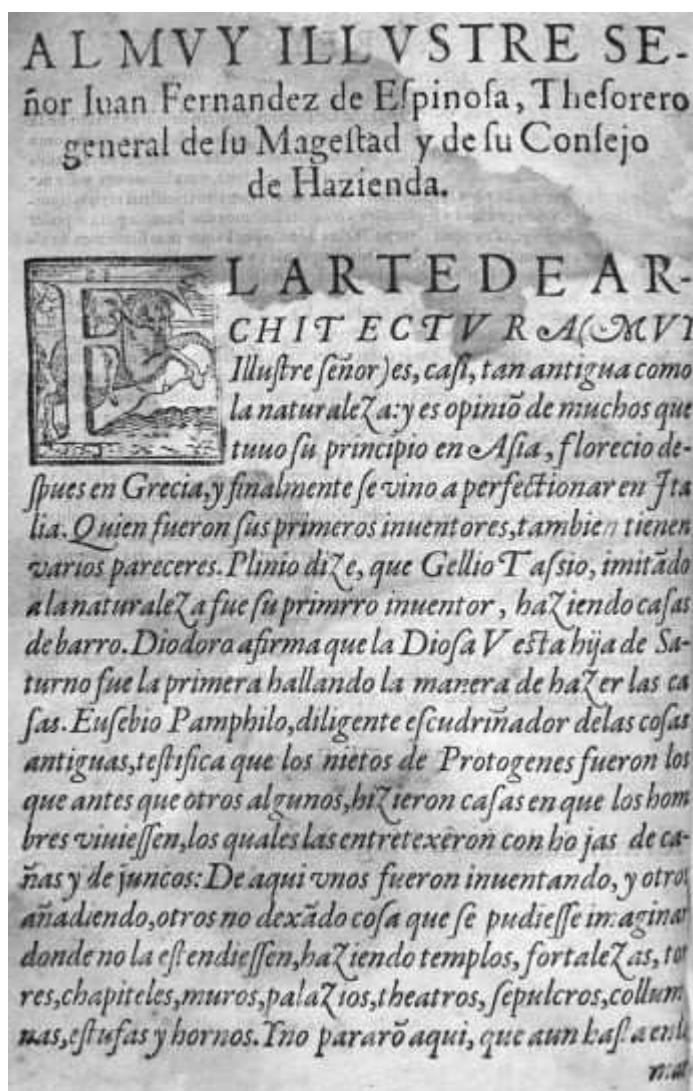 AL MVY ILLVSTRE SE-
ñor Iuan Fernandez de Eſpinoſa, Theſorero
general de ſu Mageſtad y de ſu Conſejo
de Hazienda.
EL ARTE DE AR-
CHITECTVRA (MVY
Illuſtre ſeñor) es, caſi, tan antigua como
la naturaleza: y es opiniõ de muchos que
tuuo ſu principio en Aſia, florecio de-
ſpues en Grecia, y finalmente ſe vino a perfectionar en Ita
lia. Quien fueron ſus primeros inuentores, tambien tienen
varios pareceres. Plinio dize, que Gellio Taſsio, imitãdo
a la naturaleza fue ſu primrro inuentor, haziendo caſas
de barro. Diodoro afirma que la Dioſa Veſta hija de Sa-
turno fue la primera hallando la manera de hazer las ca
ſas. Euſebio Pamphilo, diligente eſcudriñador delas coſas
antiguas, teſtifica que los nietos de Protogenes fueron los
que antes que otros algunos, hizieron caſas en que los hom
bres viuieſſen, los quales las entretexeron con ho jas de ca-
ñas y de juncos: De aqui vnos fueron inuentando, y otros
añadiendo, otros no dexãdo coſa que ſe pudieſſe imaginar
donde no la eſtendieſſen, haziendo templos, fortalezas, tor
res, chapiteles, muros, palazios, theatros, ſepulcros, collum
nas, eſtufas y hornos. Y no pararõ aqui, que aun haſta en la
mar